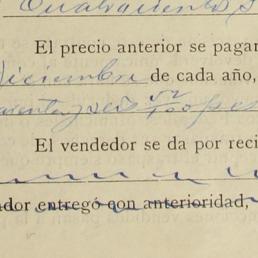 Cuatrocientos
El precio anterior se pagar
Diciembre de cada año,
arenta y seis 52/100 pes
El vendedor se da por reci
ador entregó con anterioridad,